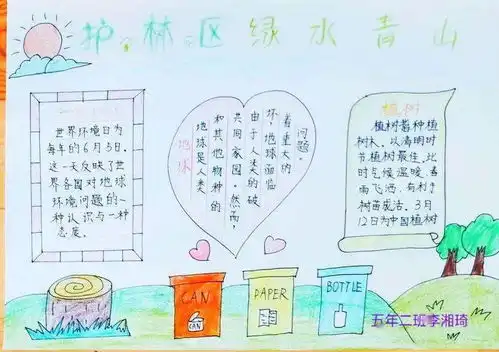 护林区绿水青山
世界环境日为
每年的6月5日。
这一天反映了世
界各国对地球
环境问题的一
种认识与一种
态度。
地球
地球是人类
和其他物种的
共同家园。然而,
由于人类的破
坏,地球面临
着重大的
问题。
植树
植树着种植
树木。以清明时
节植树最佳。比
时气候温暖,春
雨飞洒,有利于
树苗成活。3月
12日为中国植树
CAN
CAN
PAPER
BOTTLE
五年二班李湘琦